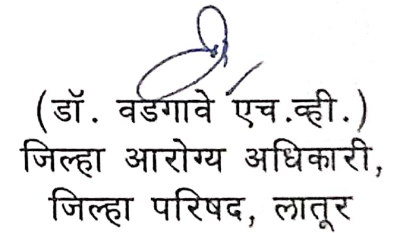 (डॉ. वडगावे एच.व्ही.)
जिल्हा आरोग्य अधिकारी,
जिल्हा परिषद, लातूर